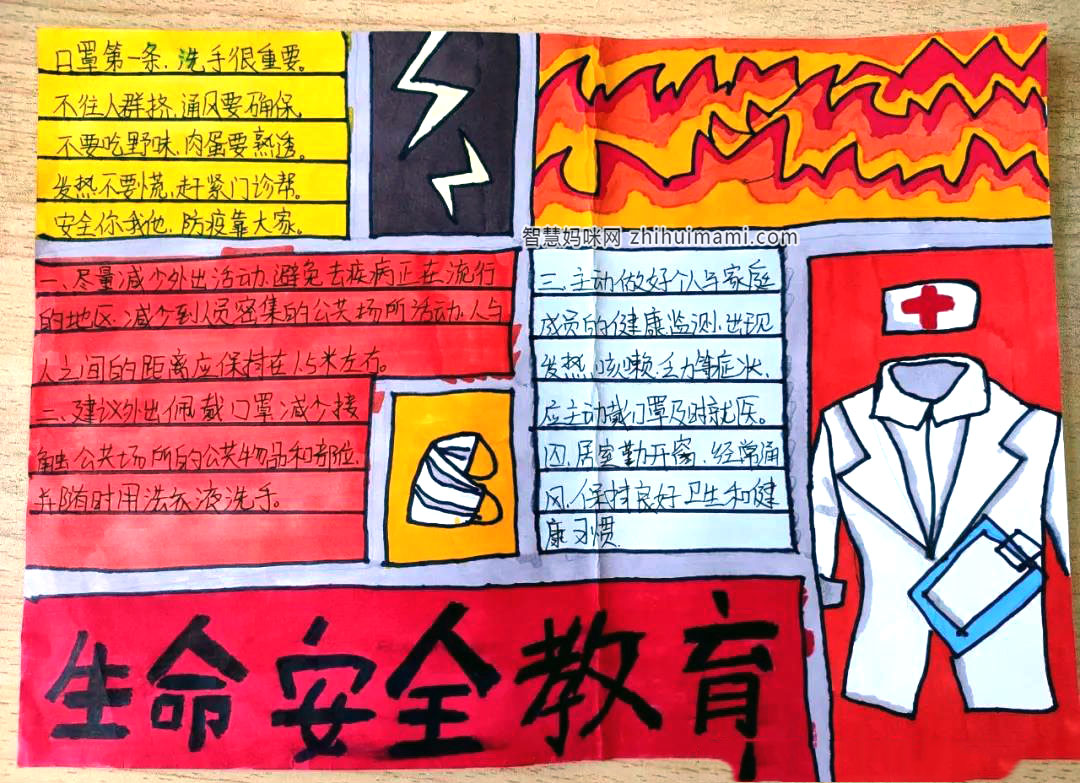 口罩第一条,洗手很重要。
不往人群挤,通风要确保,
不要吃野味,肉蛋要熟透。
发热不要慌,赶紧门诊帮。
安全你我他,防疫靠大家。
智慧妈咪网 zhihuimami.com
一、尽量减少外出活动,避免去疾病正在流行
的地区,减少到人员密集的公共场所活动,人与
人之间的距离应保持在1.5米左右。
二、建议外出佩戴口罩减少接
触公共场所的公共物品和部位,
并随时用洗衣液洗手。
三、主动做好个人与家庭
成员的健康监测,出现
发热,咳嗽,乏力等症状,
应主动戴口罩及时就医。
四,居室勤开窗,经常通
风,保持良好卫生和健
康习惯.
生命安全教育